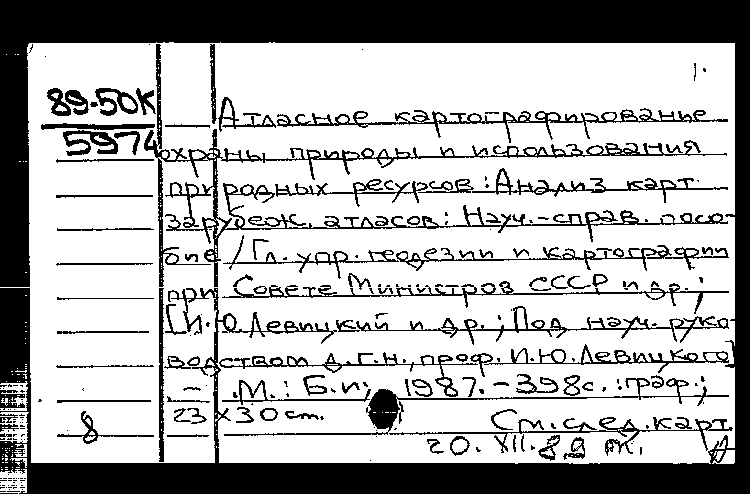 1.
89-50К
5974
Атласное картографирование
охраны природы и использования
природных ресурсов: Анализ карт
зарубеж. атласов: Науч.-справ. посо-
бие / Гл. упр. геодезии и картографии
при Совете Министров СССР и др.;
[И.Ю. Левицкий и др.; Под науч. руко-
водством д.г.н., проф. И.Ю. Левицкого]
. – М.: Б.и., 1987. – 398с.: граф.;
23 х 30 cm.
8
См. след. карт.
20. XII. 89